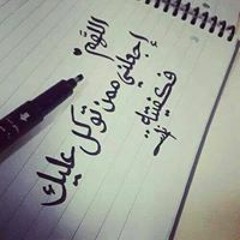 اللهم
إجعلني ممن توكل عليك
فكفيته